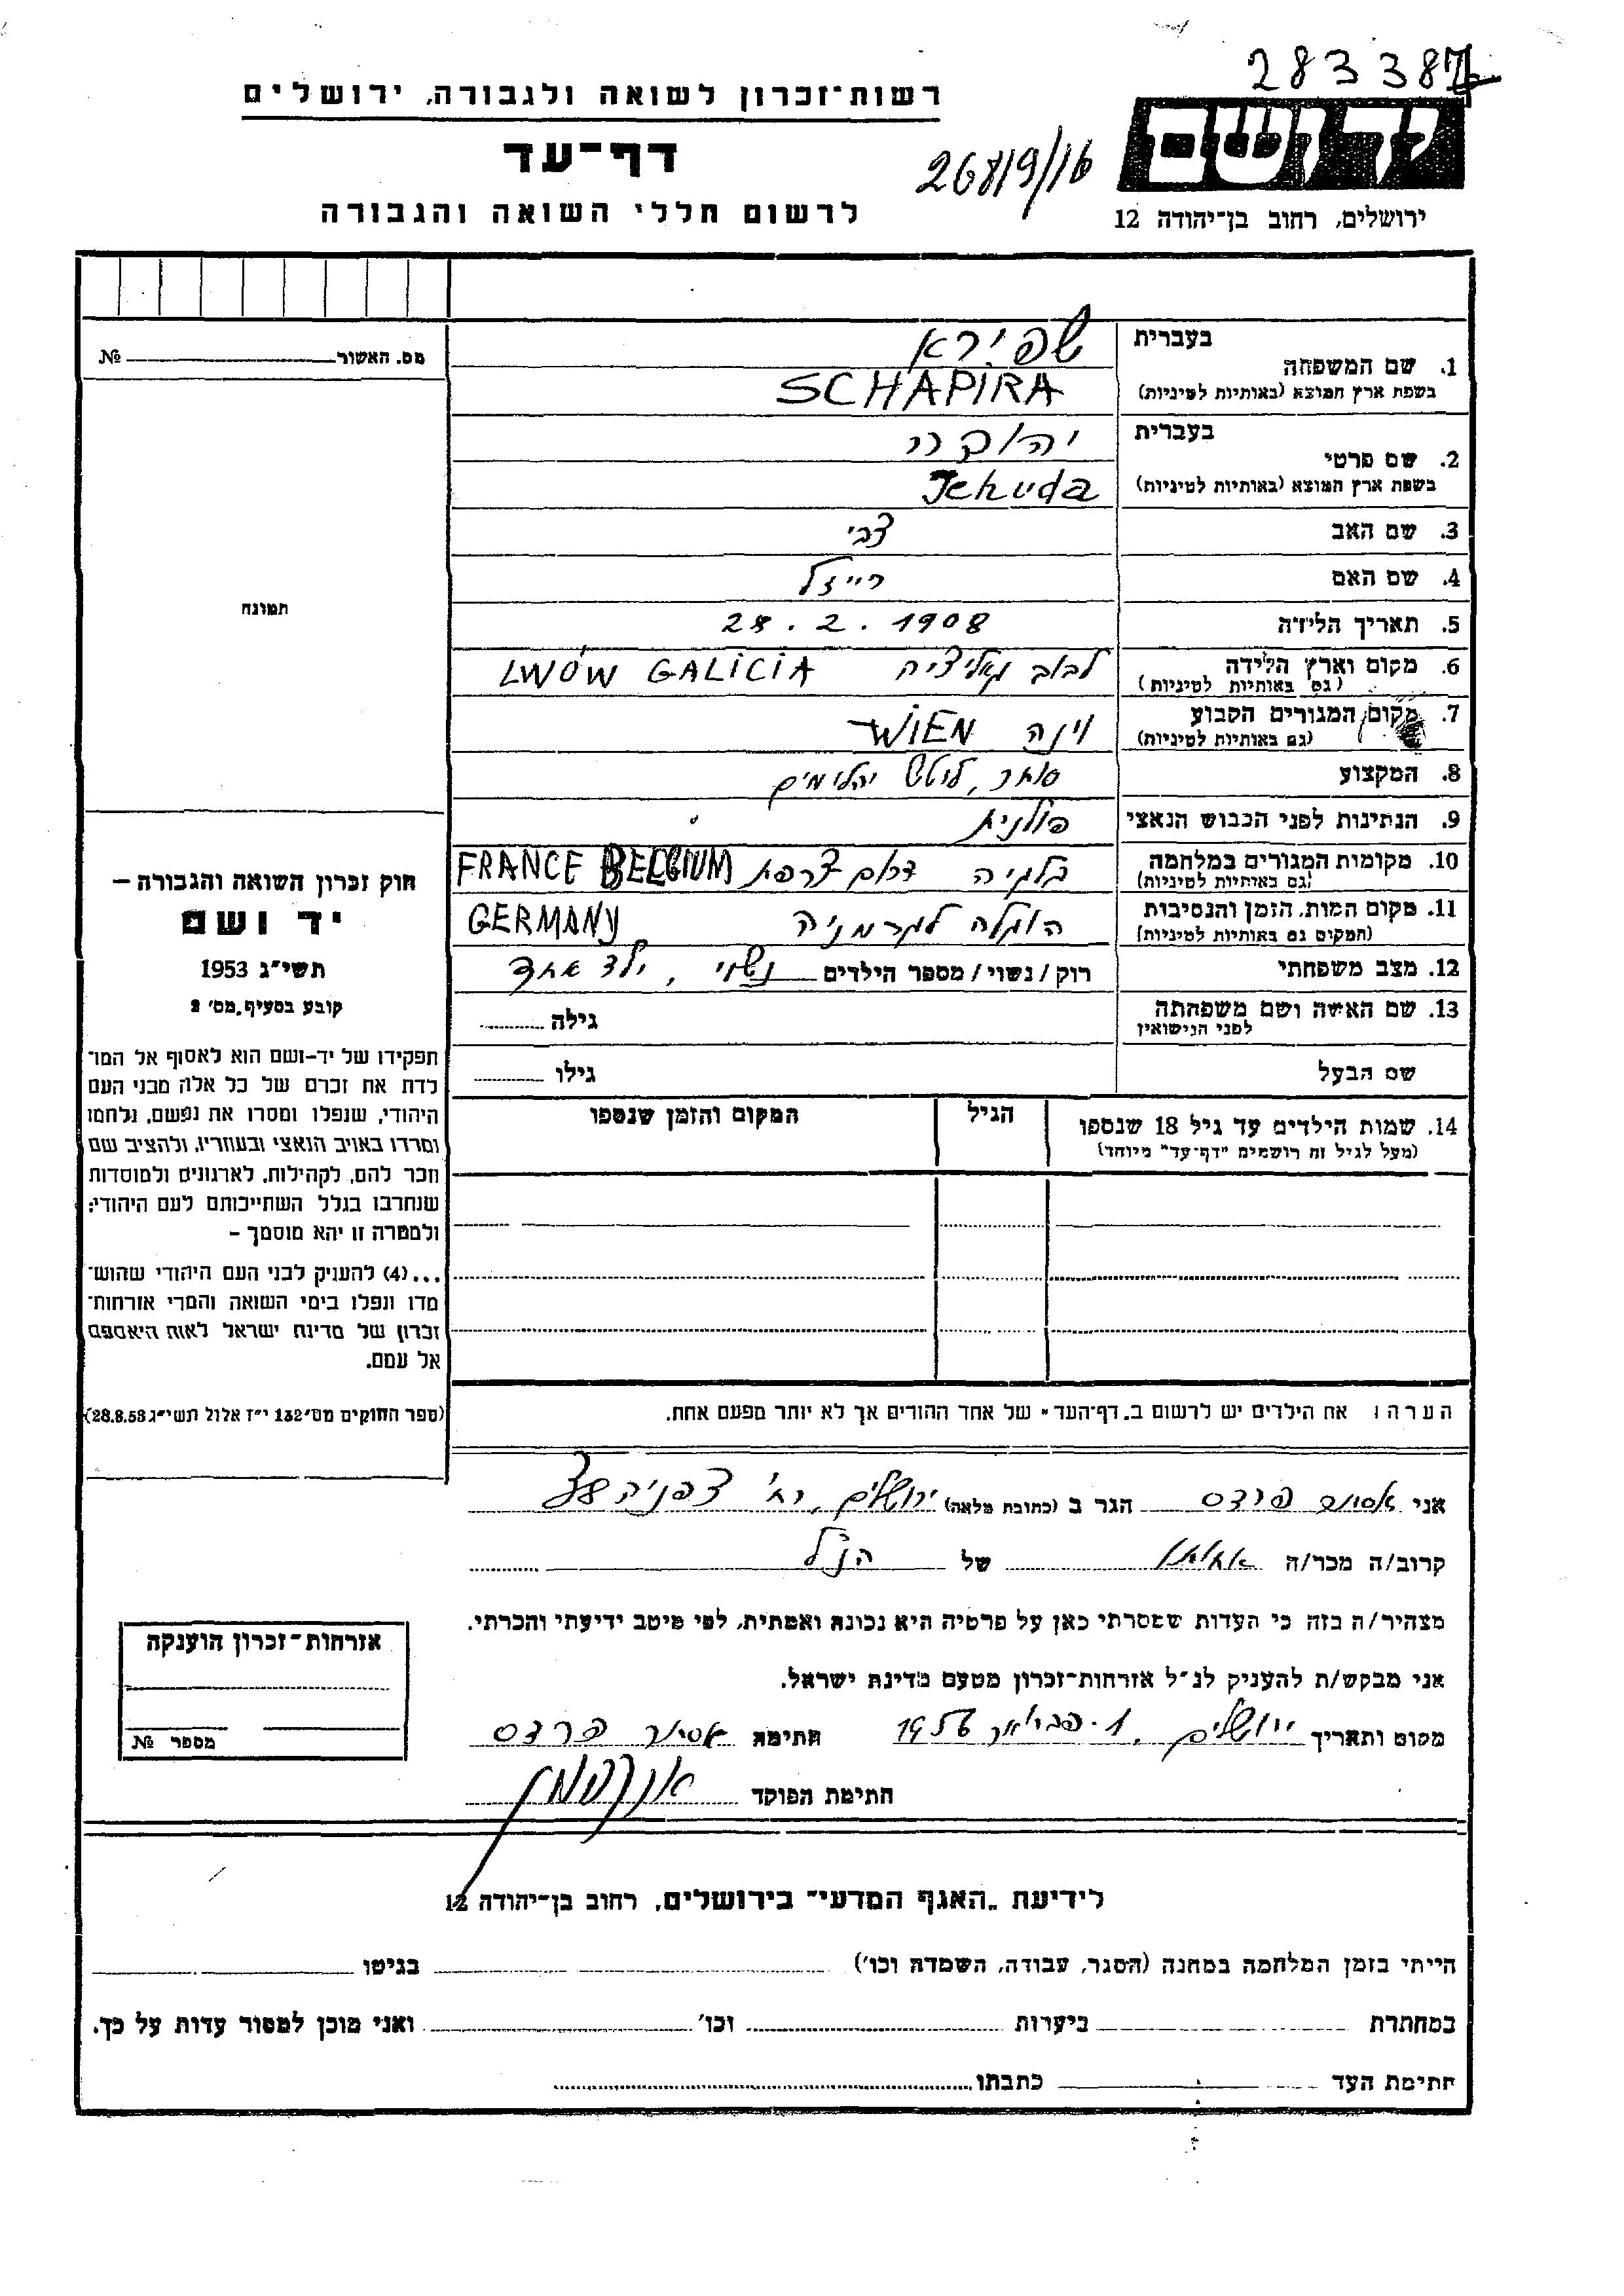 283387
רשות־זכרון לשואה ולגבורה, ירושלים
דף־עד
לרשום חללי השואה והגבורה
268/9/16
יד ושם
ירושלים, רחוב בן־יהודה 12
מס. האשור № 
1. שם המשפחה
בעברית שפירא
בשפת ארץ המוצא (באותיות לטיניות) SCHAPIRA
2. שם פרטי
בעברית יהודה
בשפת ארץ המוצא (באותיות לטיניות) Jehuda
3. שם האב צבי
4. שם האם רייזל
5. תאריך הלידה 28.2.1908
6. מקום וארץ הלידה לבוב גאליציה LWÓW GALICIA
(גם באותיות לטיניות)
7. מקום המגורים הקבוע וינה WIEN
(גם באותיות לטיניות)
8. המקצוע סוחר, לוטש יהלומים
9. הנתינות לפני הכבוש הנאצי פולנית
10. מקומות המגורים במלחמה בלגיה דרום צרפת FRANCE BELGIUM
(גם באותיות לטיניות)
11. מקום המות, הזמן והנסיבות הוגלה לגרמניה GERMANY
(המקום גם באותיות לטיניות)
12. מצב משפחתי רוק/נשוי/מספר הילדים נשוי, ילד אחד
13. שם האשה ושם משפחתה גילה
לפני הנישואין
שם הבעל גילו
14. שמות הילדים עד גיל 18 שנספו הגיל המקום והזמן שנספו
(מעל לגיל זה רושמים "דף־עד" מיוחד)
הערה: את הילדים יש לרשום ב„דף־העד" של אחד ההורים אך לא יותר מפעם אחת.
תמונה
חוק זכרון השואה והגבורה –
יד ושם
תשי"ג 1953
קובע בסעיף מס' 2
תפקידו של יד-ושם הוא לאסוף אל המו־
לדת את זכרם של כל אלה מבני העם
היהודי, שנפלו ומסרו את נפשם, נלחמו
ומרדו באויב הנאצי ובעוזריו, ולהציב שם
וזכר להם, לקהילות, לארגונים ולמוסדות
שנחרבו בגלל השתייכותם לעם היהודי;
ולמטרה זו יהא מוסמך –
...(4) להעניק לבני העם היהודי שהוש־
מדו ונפלו בימי השואה והמרי אזרחות־
זכרון של מדינת ישראל לאות היאספם
אל עמם.
(ספר החוקים מס' 132 י"ז אלול תשי"ג 28.8.53)
אני אסתר פרדס הגר ב (כתובת מלאה) ירושלים, רח' צפניה 38
קרוב/ה מכר/ה אחותו של הנ"ל
מצהיר/ה בזה כי העדות שמסרתי כאן על פרטיה היא נכונה ואמתית, לפי מיטב ידיעתי והכרתי.
אני מבקש/ת להעניק לנ"ל אזרחות־זכרון מטעם מדינת ישראל.
מקום ותאריך ירושלים, 1. פברואר 1956 חתימה אסתר פרדס
חתימת הפוקד
אזרחות־זכרון הוענקה
מספר №
לידיעת „האגף המדעי" בירושלים, רחוב בן־יהודה 12
הייתי בזמן המלחמה במחנה (הסגר, עבודה, השמדה וכו') בגיטו
במחתרת ביערות וכו' ואני מוכן למסור עדות על כך.
חתימת העד כתבתו